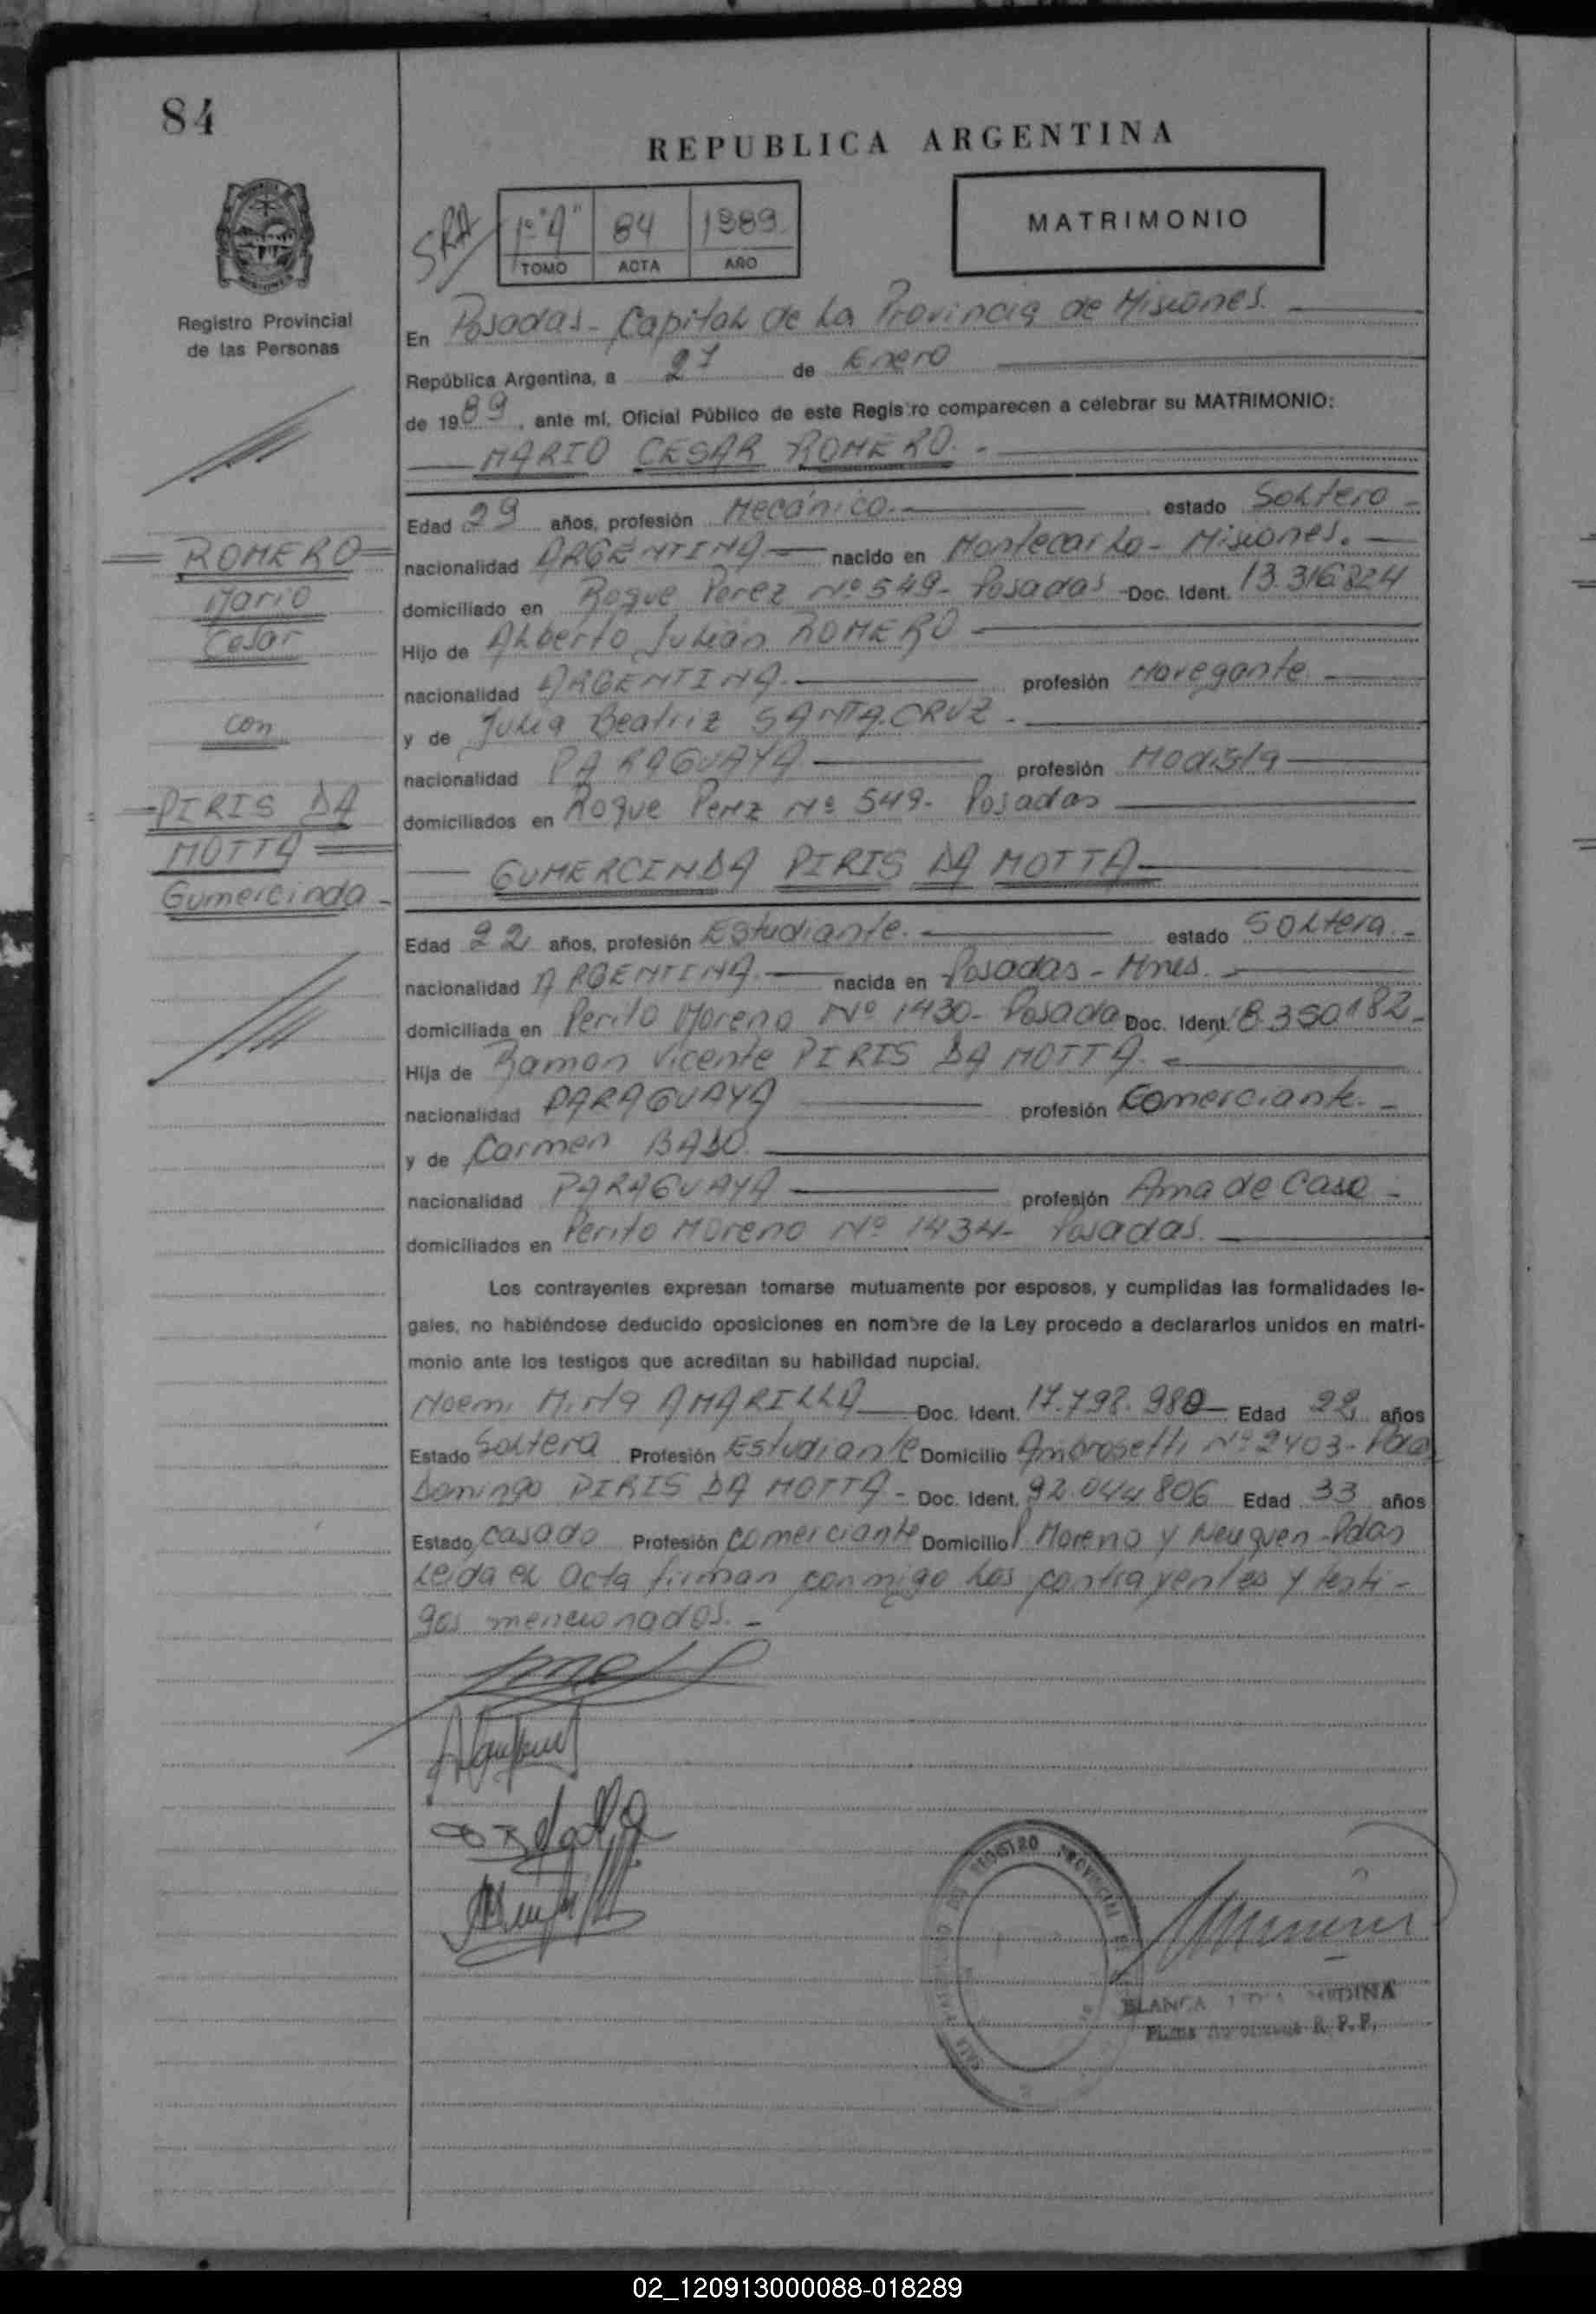 84
REPUBLICA ARGENTINA
Registro Provincial
de las Personas
SRA
1º "A" 84 1989
TOMO ACTA AÑO
MATRIMONIO
En Posadas - Capital de La Provincia de Misiones.
República Argentina, a 27 de Enero
de 1989, ante mí, Oficial Público de este Registro comparecen a celebrar su MATRIMONIO:
MARIO CESAR ROMERO. -
Edad 29 años, profesión Mecánico. estado Soltero -
nacionalidad ARGENTINA nacido en Montecarlo - Misiones. -
domiciliado en Roque Perez Nº 549 - Posadas - Doc. Ident. 13.316.824
Hijo de Alberto Julián ROMERO
nacionalidad ARGENTINA. profesión Navegante.
y de Julia Beatriz SANTA CRUZ -
nacionalidad PARAGUAYA profesión Modista
domiciliados en Roque Perez Nº 549 - Posadas
ROMERO
Mario
Cesar
con
PIRIS DA
MOTTA
Gumercinda -
GUMERCINDA PIRIS DA MOTTA
Edad 22 años, profesión Estudiante. estado Soltera. -
nacionalidad ARGENTINA. nacida en Posadas - Mnes.
domiciliada en Perito Moreno Nº 1430 - Posadas Doc. Ident. 18.350182 -
Hija de Ramon Vicente PIRIS DA MOTTA. -
nacionalidad PARAGUAYA profesión Comerciante. -
y de Carmen BADO.
nacionalidad PARAGUAYA profesión Ama de Casa -
domiciliados en Perito Moreno Nº 1434 - Posadas.
Los contrayentes expresan tomarse mutuamente por esposos, y cumplidas las formalidades le-
gales, no habiéndose deducido oposiciones en nombre de la Ley procedo a declararlos unidos en matri-
monio ante los testigos que acreditan su habilidad nupcial.
Noemi Mirta AMARILLA Doc. Ident. 17.798.980 Edad 22 años
Estado Soltera Profesión Estudiante Domicilio Ambrosetti Nº 2403 - Pdas
Domingo PIRIS DA MOTTA - Doc. Ident. 92.044.806 Edad 33 años
Estado casado Profesión comerciante Domicilio P. Moreno y Neuquen - Pdas
Leida el acta firman conmigo los contrayentes y testi-
gos mencionados. -
REGISTRO PROVINCIAL
BLANCA MEDINA
R. P. P.
02_120913000088-018289